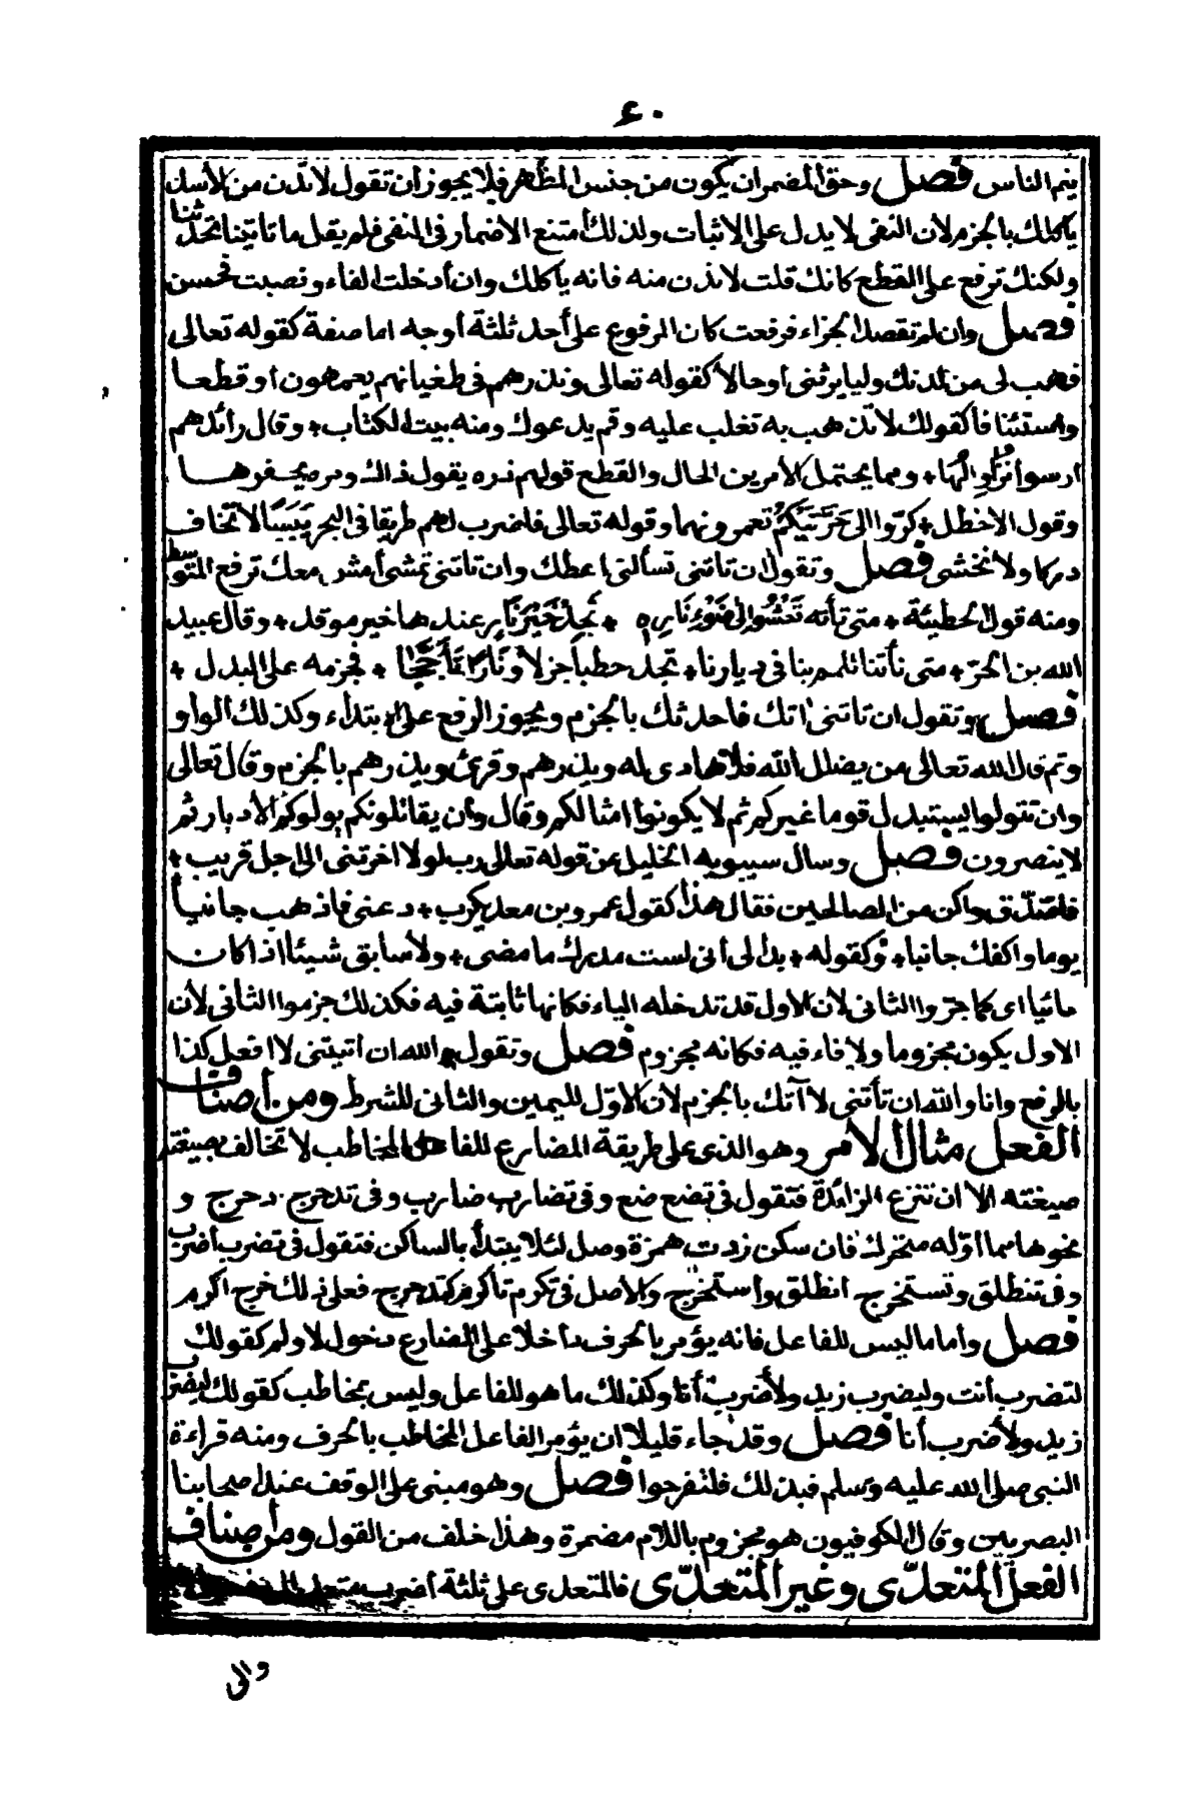 ٤٠
ينم الناس فصل وحق المضمر ان يكون من جنس المظهر فلا يجوز ان تقول لا تدن من الأسد
يأكلك بالجزم لأن النفى لا يدل على الاثبات ولذلك امتنع الاضمار فى المنفى فلم يقل ما تأتينا تحدثنا
ولكنك ترفع على القطع كانك قلت لا تدن منه فانه يأكلك وان أدخلت الفاء ونصبت فحسن
فصل وان لم تقصد الجزاء فرفعت كان المرفوع على أحد ثلثة أوجه اما صفة كقوله تعالى
فهب لى من لدنك وليا يرثنى أو حالا كقوله تعالى ونذرهم فى طغيانهم يعمهون أو قطعا
واستئنافا كقولك لا تذهب به تغلب عليه وقم يدعوك ومنه بيت الكتاب وقال رائدهم
ارسوا نزاولها ومما يحتمل الأمرين الحال والقطع قولهم ذره يقول ذاك ومره يحفرها
وقول الاخطل كرّوا الى حَرَّتَيْكُمْ تعمرونهما وقوله تعالى فاضرب لهم طريقا فى البحر يَبَسًا لا تخاف
دركا ولا تخشى فصل وتقول ان تاتنى تسألنى اعطك وان تاتنى تمشى أمش معك ترفع المتوسط
ومنه قول الحطيئة متى تأته تَعْشُو إلى ضَوْءِ نَارِهِ تَجِدْ خَيْرَ نَارٍ عندها خير موقد وقال عبيد
الله بن الحرّ متى تأتنا تلمم بنا فى ديارنا تجد حطبا جزلا ونَارًا تَأَجَّجَا فجزمه على البدل
فصل وتقول ان تاتنى اتك فاحدثك بالجزم ويجوز الرفع على الابتداء وكذلك الواو
وثم قال الله تعالى من يضلل الله فلا هادى له ويذرهم وقرئ ويذرهم بالجزم وقال تعالى
وان تتولوا يستبدل قوما غيركم ثم لا يكونوا امثالكم وقال وان يقاتلونكم يولوكم الأدبار ثم
لا ينصرون فصل وسال سيبويه الخليل عن قوله تعالى رب لولا اخرتنى الى اجل قريب
فاصّدّق واكن من الصالحين فقال هذا كقول عمرو بن معديكرب دعنى فاذهب جانبا
يوما واكفك جانبا وكقوله بدا لى أنى لست مدرك ما مضى ولا سابق شيئا اذا كان
جائيا اى كما جرّوا الثانى لأن الاول قد تدخله الباء فكانها ثابتة فيه فكذلك جزموا الثانى لأن
الاول يكون مجزوما ولا فاء فيه فكانه مجزوم فصل وتقول والله ان اتيتنى لا افعل كذا
بالرفع وانا والله ان تأتنى لا آتك بالجزم لأن الاوّل لليمين والثانى للشرط ومن أصناف
الفعل مثال الأمر وهو الذى على طريقة المضارع للفاعل المخاطب لا تخالف بصيغته
صيغته الا ان تنزع الزائدة فتقول فى تضع ضع وفى تضارب ضارب وفى تدحرج دحرج و
نحوها مما اوّله متحرك فان سكن زدت همزة وصل لئلا يبتدأ بالساكن فتقول فى تضرب اضرب
وفى تنطلق وتستخرج انطلق واستخرج والأصل فى تكرم تأكرم كتدحرج فعلى ذلك خرج اكرم
فصل وأما ما ليس للفاعل فانه يؤمر بالحرف داخلا على المضارع دخول لا ولم كقولك
لتضرب أنت وليضرب زيد ولأضرب أنا وكذلك ما هو للفاعل وليس بمخاطب كقولك ليضرب
زيد ولأضرب أنا فصل وقد جاء قليلا ان يؤمر الفاعل المخاطب بالحرف ومنه قراءة
النبى صلى الله عليه وسلم فبذلك فلتفرحوا فصل وهو مبنى على الوقف عند اصحابنا
البصريين وقال الكوفيون هو مجزوم باللام مضمرة وهذا خلف من القول ومن أصناف
الفعل المتعدّى وغير المتعدّى فالمتعدى على ثلثة أضرب متعد الى مفعول
والى